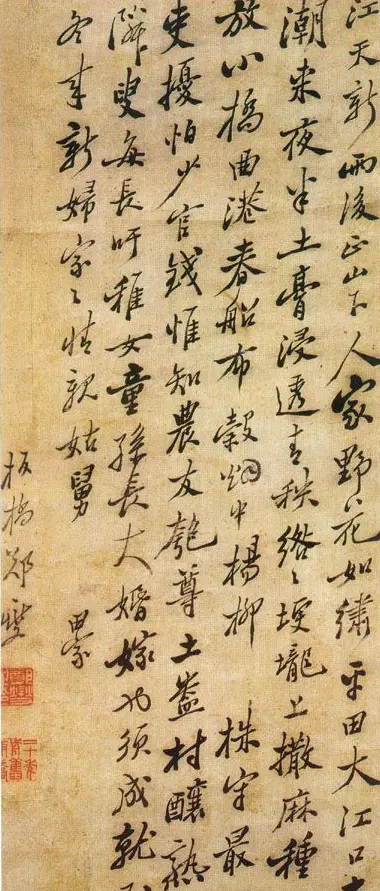 江天新雨後正山下人家野花如繡平田大江口
潮來夜半土膏浸透青秧絡〻埂壠上撒麻種
放小橋曲港春船布穀烟中楊柳 株守最
吏擾怕少官錢惟知農友匏尊土盎村釀熟
隣叟每長吁稚女童孫長大婚嫁也須成就
冬來新婦家〻情親姑舅
板橋鄭燮